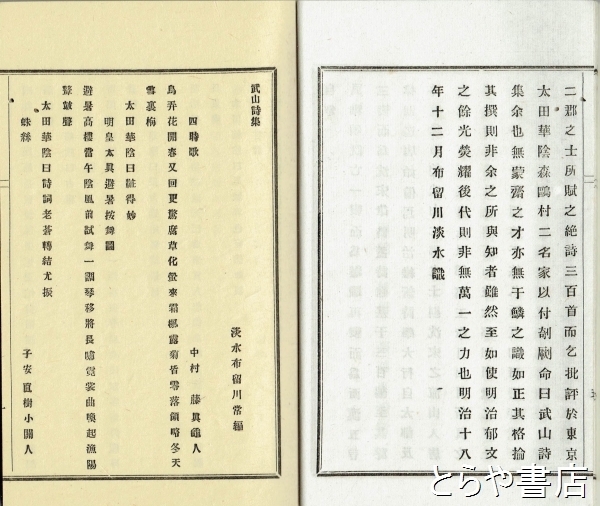 二郡之士所賦之絶詩三百首而乞批評於東京
太田華陰森鷗村二名家以付剞劂命曰武山詩
集余也無蒙齋之才亦無于鱗之識如正其格掄
其撰則非余之所與知者雖然至如使明治郁文
之餘光熒耀後代則非無萬一之力也明治十八
年十二月布留川淡水識
武山詩集
淡水布留川常編
四時歌
中村 藤眞龜人
鳥弄花開春又回更驚腐草化螢來霜楓露菊皆零落領略冬天
雪裏梅
太田華陰曰詼得妙
明皇太眞避暑按舞圖
子安直樹小開人
避暑高樓當午陰風前試舞一調琴移將長噓霓裳曲喚起漁陽
聲鼓聲
太田華陰曰詩詞老蒼轉結尤振
蛛絲
とらや書店